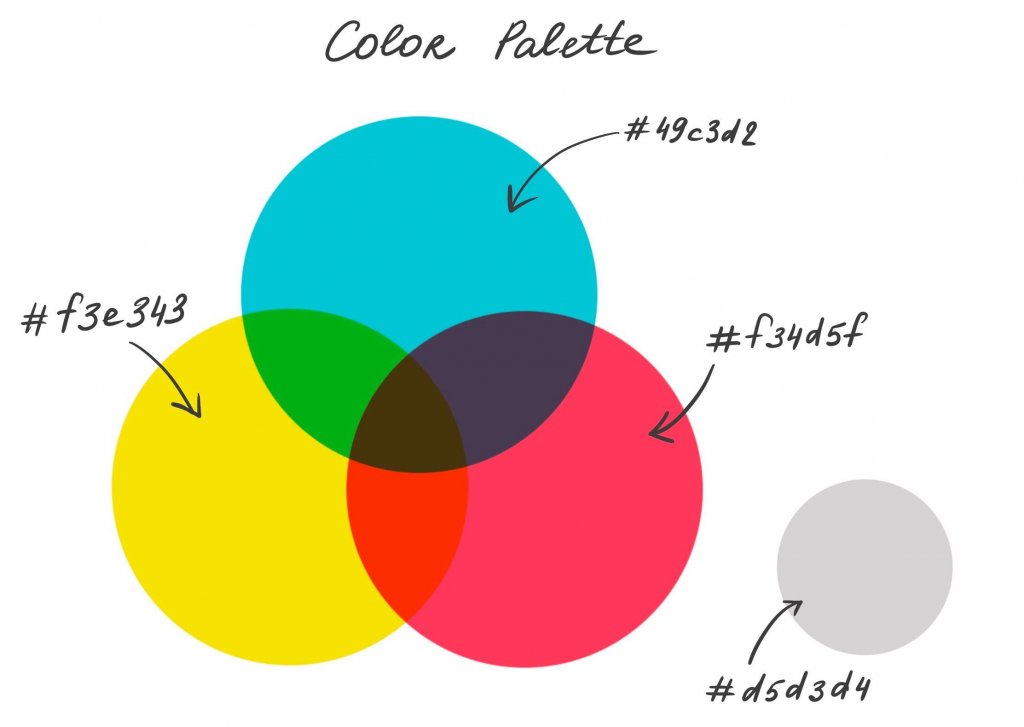 Color Palette
#49c3d2
#f3e343
#f34d5f
#d5d3d4